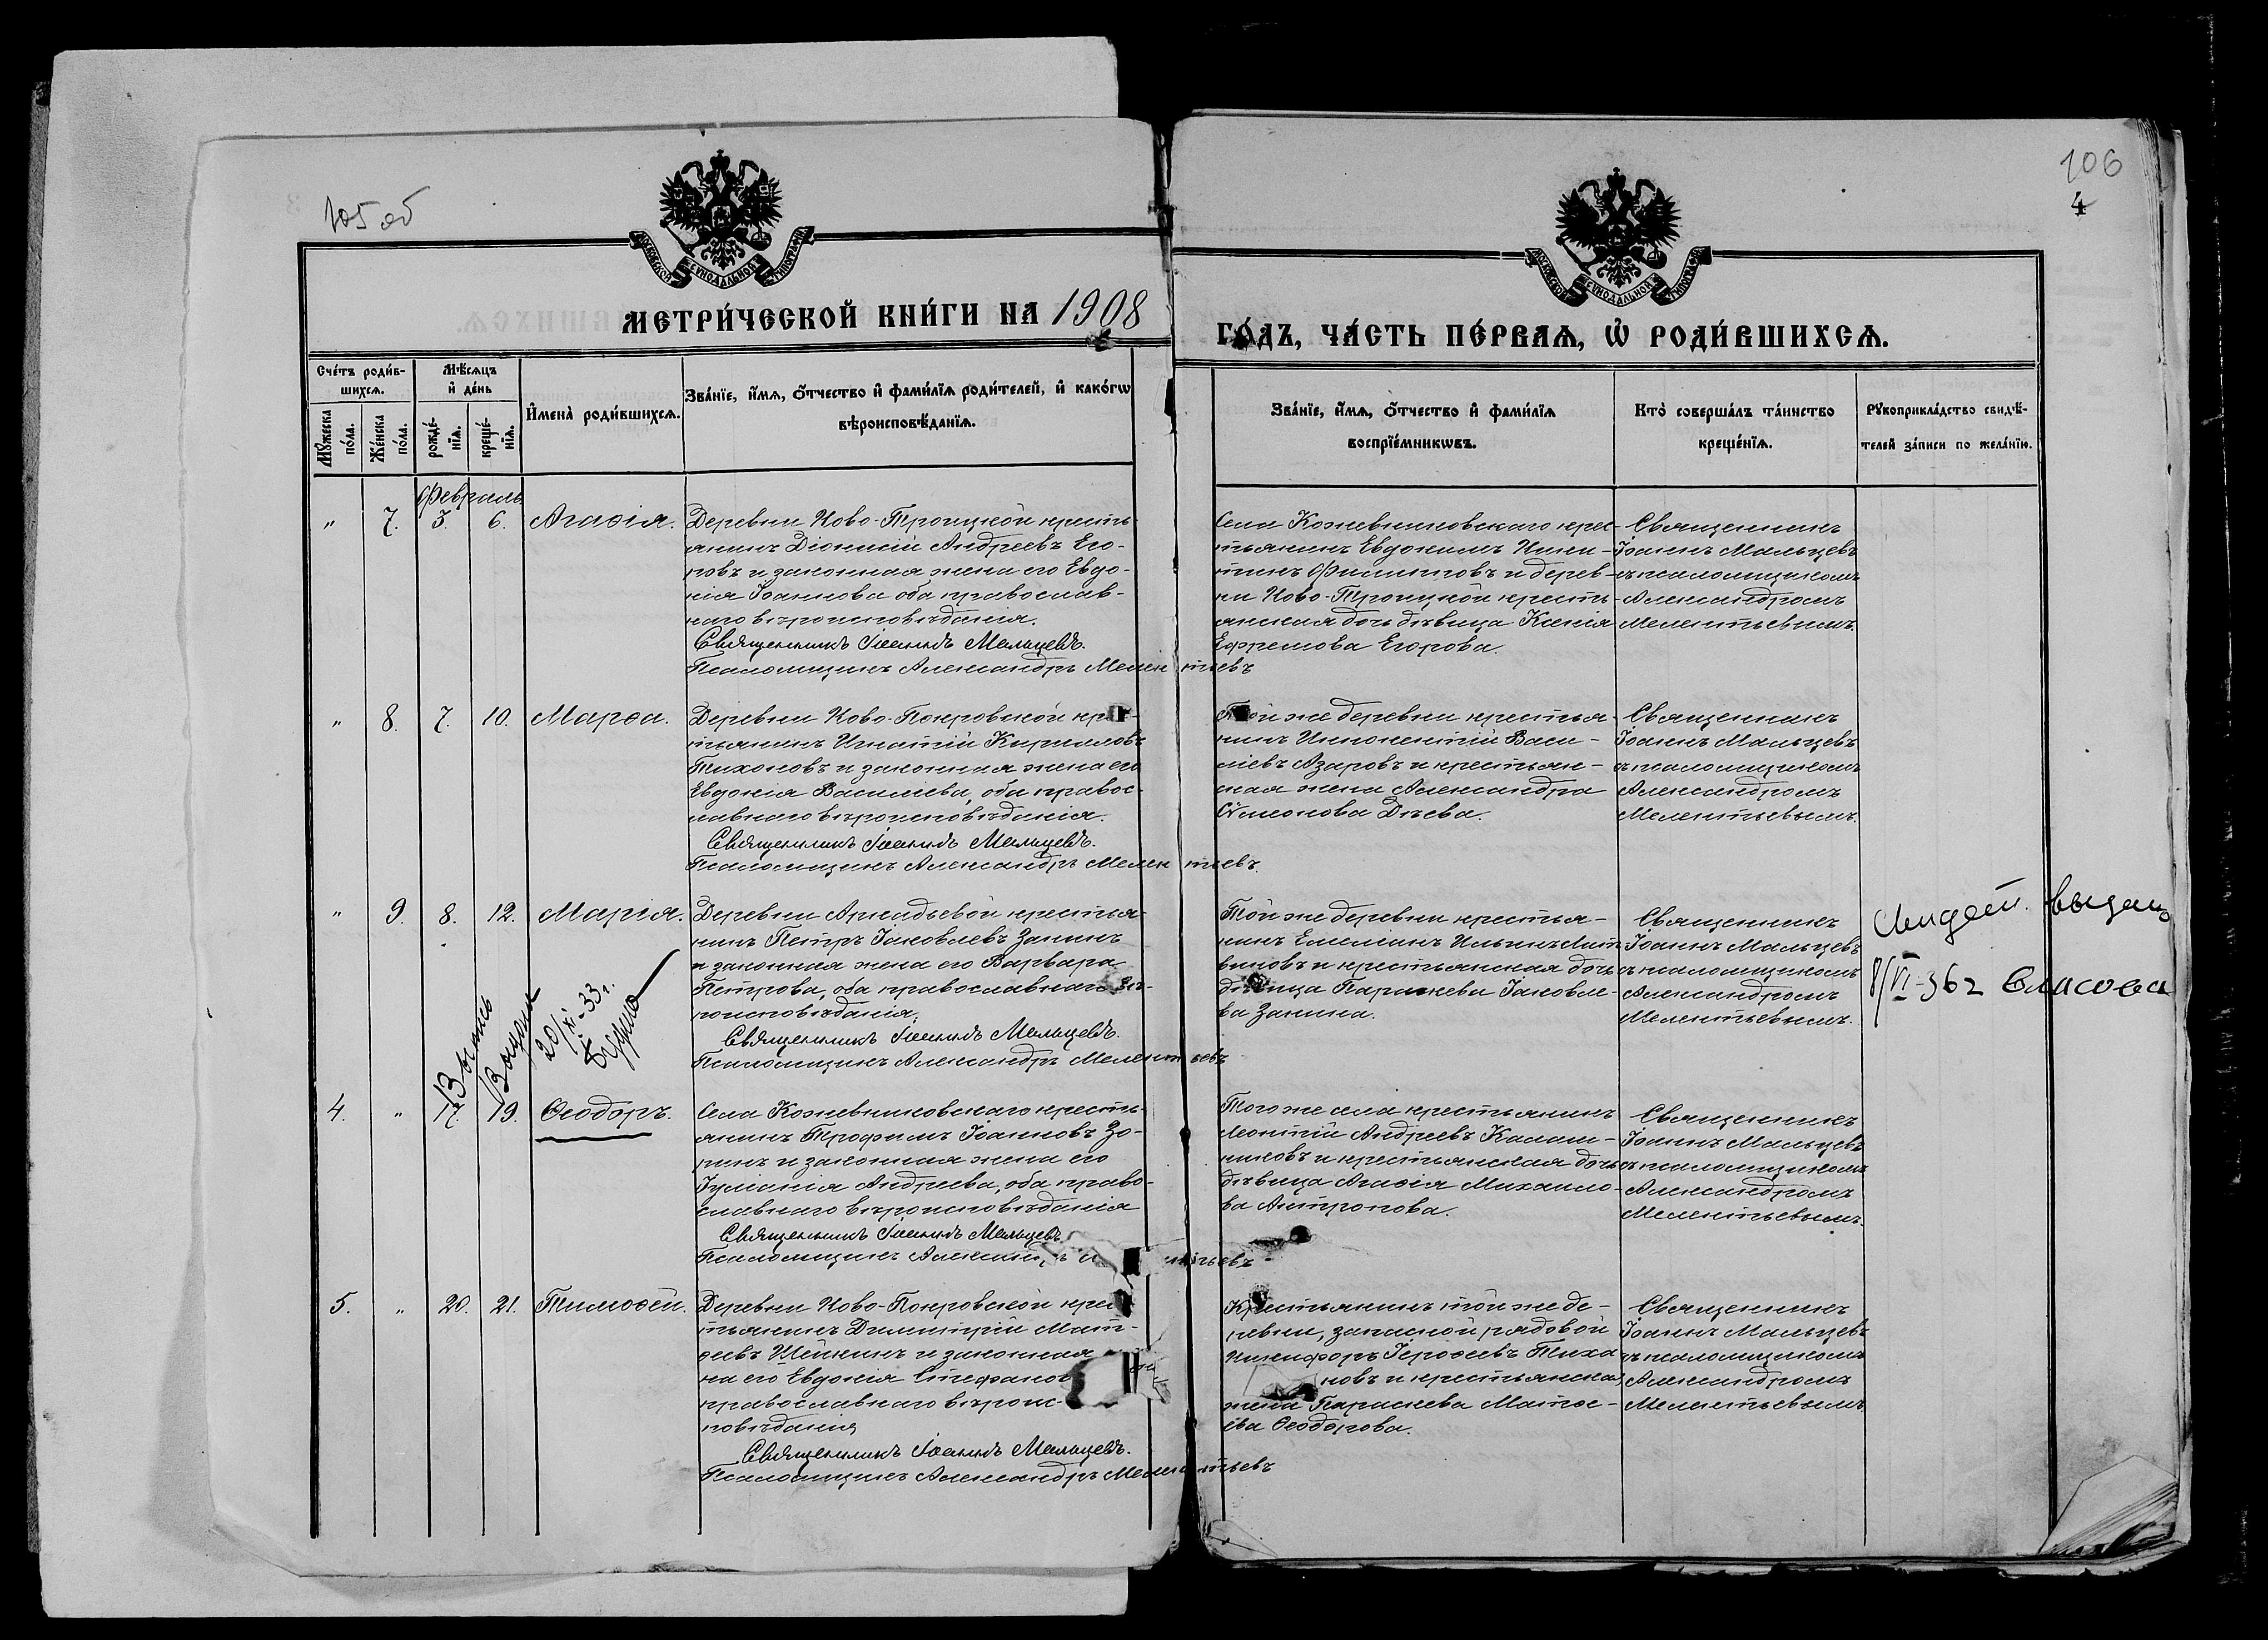 105 об
106
4
МОСКОВСКОЙ СѴНОДАЛЬНОЙ ТИПОГРАФІИ
МОСКОВСКОЙ СѴНОДАЛЬНОЙ ТИПОГРАФІИ
МЕТРИ́ЧЕСКОЙ КНИ́ГИ НА 1908
ГО́ДЪ, ЧА́СТЬ ПЕ́РВАѦ, Ѡ҆ РОДИ́ВШИХСѦ.
Сче́тъ роди́в-
шихсѧ.
Мꙋ́жеска
по́ла.
Же́нска
по́ла.
Мѣ́сѧцъ
и҆ де́нь
рожде́-
нїѧ.
креще́-
нїѧ.
И҆мена̀ роди́вшихсѧ.
Зва́нїе, и҆́мѧ, ѻ҆́тчество и҆ фами́лїѧ роди́телей, и҆ како́гѡ
вѣроисповѣ́данїѧ.
Зва́нїе, и҆́мѧ, ѻ҆́тчество и҆ фами́лїѧ
воспрїе́мникѡвъ.
Кто̀ соверша́лъ та́инство
креще́нїѧ.
Рꙋкоприкла́дство свидѣ́-
телей за́писи по жела́нїю.
Февраль
" 7. 3. 6. Агаѳія.
Деревни Ново-Троицкой кресть-
янинъ Діонисій Андреевъ Его-
ровъ и законная жена его Евдо-
кія Іоаннова оба православ-
наго вѣроисповѣданія.
Священникъ Іоаннъ Мальцевъ.
Псаломщикъ Александръ Мелентьевъ
Села Кожевниковскаго крес-
тьянинъ Евдокимъ Ники-
тинъ Филипповъ и дерев-
ни Ново-Троицкой кресть-
янская дочь дѣвица Ксенія
Ефремова Егорова.
Священникъ
Іоаннъ Мальцевъ
съ псаломщикомъ
Александромъ
Мелентьевымъ.
" 8. 7. 10. Марѳа.
Деревни Ново-Покровской крес-
тьянинъ Игнатій Кирилловъ
Тихоновъ и законная жена его
Евдокія Васильева, оба правос-
лавнаго вѣроисповѣданія.
Священникъ Іоаннъ Мальцевъ.
Псаломщикъ Александръ Мелентьевъ.
Той же деревни крестья-
нинъ Иннокентій Васи-
ліевъ Азаровъ и крестьян-
ская жена Александра
Сѵмеонова Дѣева.
Священникъ
Іоаннъ Мальцевъ
съ псаломщикомъ
Александромъ
Мелентьевымъ.
" 9. 8. 12. Марія.
Деревни Аркадьевой крестья-
нинъ Петръ Іаковлевъ Занинъ
и законная жена его Варвара
Петрова, оба православнаго вѣ-
роисповѣданія.
Священникъ Іоаннъ Мальцевъ.
Псаломщикъ Александръ Мелентьевъ
Той же деревни крестья-
нинъ Емеліанъ Ильинъ Лит-
виновъ и крестьянская дочь
дѣвица Параскева Іаковле-
ва Занина.
Священникъ
Іоаннъ Мальцевъ
съ псаломщикомъ
Александромъ
Мелентьевымъ.
выдано
8/VI-36г Власова
20/XI-33г.
4. " 17. 19. Ѳеодоръ.
Села Кожевниковскаго кресть-
янинъ Трофимъ Іоанновъ Зо-
ринъ и законная жена его
Іуліанія Андреева, оба право-
славнаго вѣроисповѣданія
Священникъ Іоаннъ Мальцевъ.
Псаломщикъ
Того же села крестьянинъ
Леонтій Андреевъ Калаш-
никовъ и крестьянская дочь
дѣвица Агаѳія Михаило-
ва Антропова.
Священникъ
Іоаннъ Мальцевъ
съ псаломщикомъ
Александромъ
Мелентьевымъ.
5. " 20. 21. Тимоѳей.
Деревни Ново-Покровской крес-
тьянинъ Димитрій Мат-
ѳеевъ Шейкинъ и законная
на его Евдокія Стефанов
православнаго вѣроис-
повѣданія
Священникъ Іоаннъ Мальцевъ.
Псаломщикъ Александръ Мелентьевъ
Крестьянинъ той же де-
ревни, запасной рядовой
Никифоръ Іероѳеевъ Тихо
новъ и крестьянская
жена Параскева Матѳе-
ева Ѳеодорова.
Священникъ
Іоаннъ Мальцевъ
съ псаломщикомъ
Александромъ
Мелентьевымъ